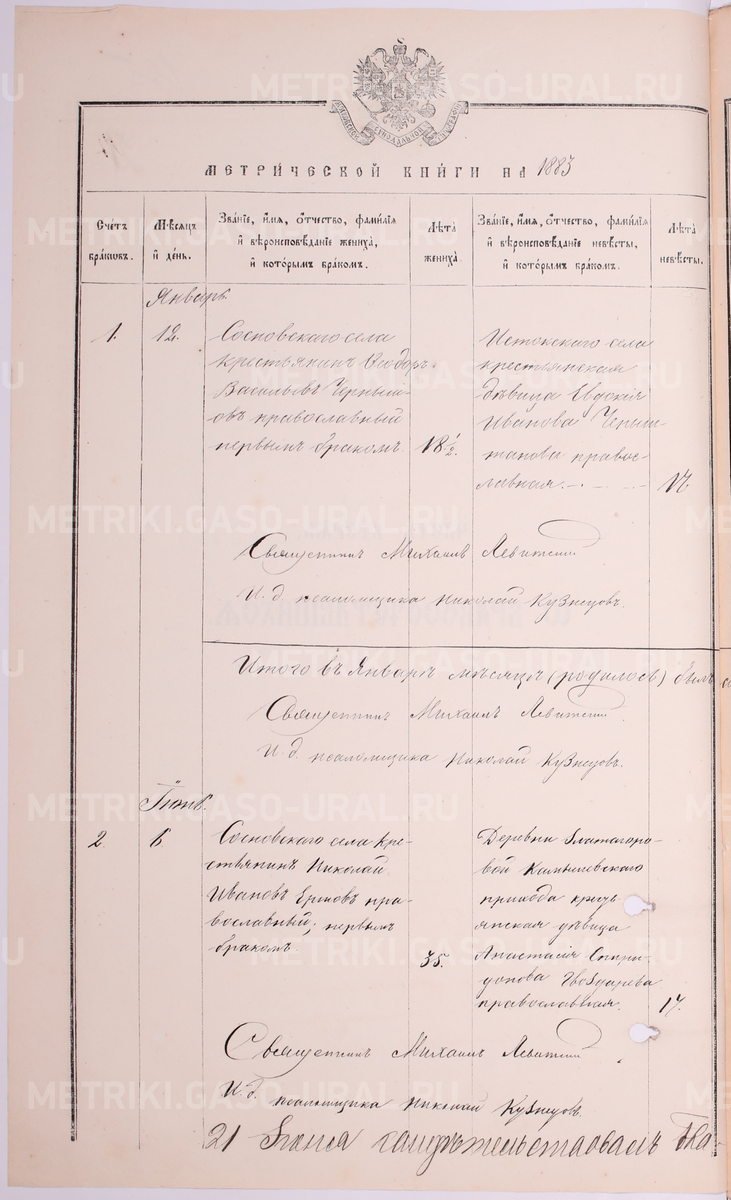 МЕТРИЧЕСКОЙ КНИГИ НА 1883
Счетъ браковъ.
Мѣсяцъ и день.
Званіе, имя, отчество, фамилія и вѣроисповѣданіе жениха, и которымъ бракомъ.
Лѣта жениха.
Званіе, имя, отчество, фамилія и вѣроисповѣданіе невѣсты, и которымъ бракомъ.
Лѣта невѣсты.
Январь
1.
12.
Сосновскаго села
крестьянинъ Ѳеодоръ
Васильевъ Черныш-
овъ православный
первымъ бракомъ.
18 1/2.
Истокскаго села
крестьянская
дѣвица Евдокія
Иванова Черныш-
танова правос-
лавная.
17.
Священникъ Михаилъ Левитскій
И. д. псаломщика Николай Кузнецовъ.
Итого въ Январѣ мѣсяцѣ (родилось) былъ
Священникъ Михаилъ Левитскій
И. д. псаломщика Николай Кузнецовъ.
2
6
Сосновскаго села кре-
стьянинъ Николай
Ивановъ Ершовъ пра-
вославный, первымъ
бракомъ.
35.
Деревни Златогоро-
вой Камышевскаго
прихода кресть
янская дѣвица
Анастасія Спири-
донова Гвоздарева
православная.
17.
Священникъ Михаилъ Левитскій
И. д. псаломщика Николай Кузнецовъ
21
METRIKI.GASO-URAL.RU